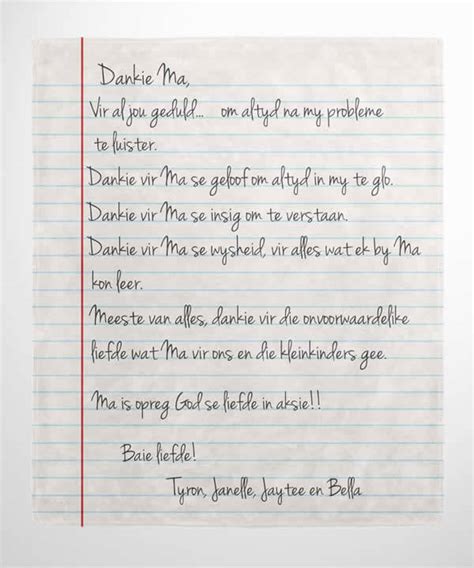 Dankie Ma,
Vir al jou geduld... om altyd na my probleme
te luister.
Dankie vir Ma se geloof om altyd in my te glo.
Dankie vir Ma se insig om te verstaan.
Dankie vir Ma se wysheid, vir alles wat ek by Ma
kon leer.
Meeste van alles, dankie vir die onvoorwaardelike
liefde wat Ma vir ons en die kleinkinders gee.
Ma is opreg God se liefde in aksie!!
Baie liefde!
Tyron, Janelle, Jaytee en Bella